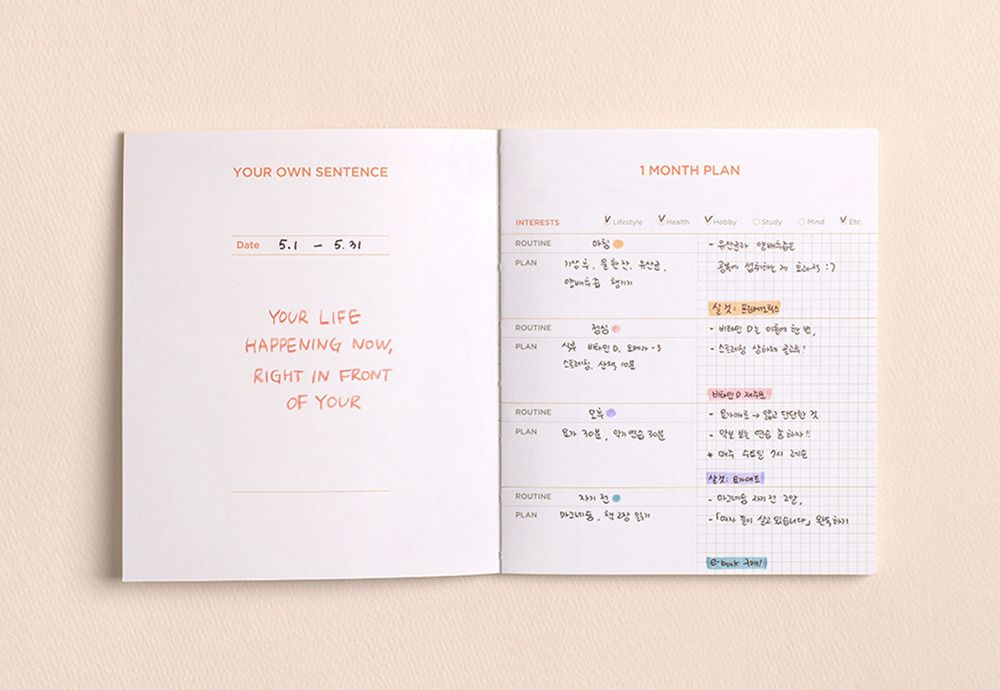 YOUR OWN SENTENCE
Date 5.1 - 5.31
YOUR LIFE
HAPPENING NOW,
RIGHT IN FRONT
OF YOUR
1 MONTH PLAN
INTERESTS Lifestyle Health Hobby Study Mind Etc.
ROUTINE 아침
PLAN 기상 후, 물 한 잔, 유산균,
양배추즙 챙기기
- 유산균과 양배추즙은
공복에 섭취하는 게 효과적 :)
살 것: 프리바이오틱스
ROUTINE 점심
PLAN 식후 비타민 D, 오메가-3
스트레칭, 산책 10분
- 비타민 D는 이틀에 한 번,
- 스트레칭 상하체 골고루!
비타민 D 재주문
ROUTINE 오후
PLAN 요가 30분, 악기 연습 30분
- 요가매트 → 얇고 단단한 것
- 악보 보는 연습 중 하자!!
* 매주 수요일 7시 레슨
살것: 요가매트
ROUTINE 자기 전
PLAN 마그네슘, 책 2장 읽기
- 마그네슘 자기 전 2알,
- 「여자 둘이 살고 있습니다」 완독하기
e-book 구매!